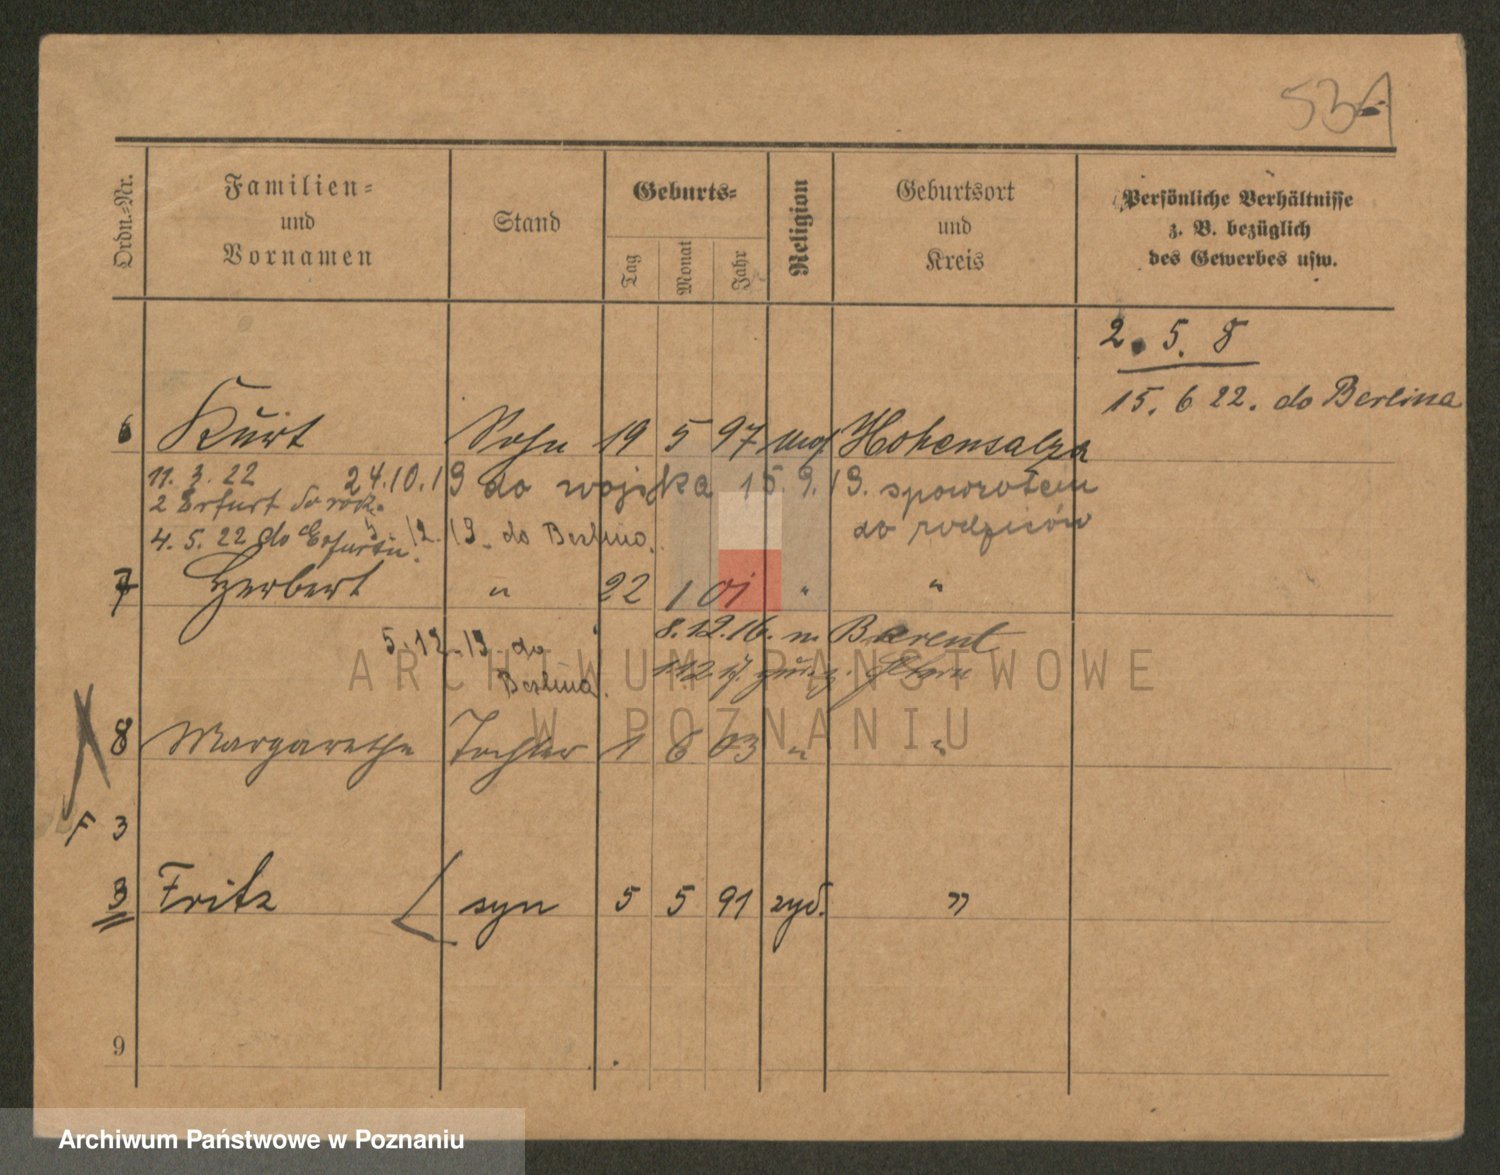 Ordn.-Nr.
Familien-
und
Vornamen
Stand
Geburts-
Tag
Monat
Jahr
Religion
Geburtsort
und
Kreis
Persönliche Verhältnisse
z. B. bezüglich
des Gewerbes usw.
2. 5. 8
15. 6 22. do Berlina
6 Kurt Sohn 19 5 97 Hohensalza
11. 3. 22 24.10.19 do wojska 15.9.19. spowrotem
2 Erfurt do rodziców
4. 5. 22 do Erfurtu 12. 19. do Berlina.
7 Herbert " 22 1 01 " "
8.12.16. n. Berent
5.12.19. do
Berlina.
1.12.17. zurück
8 Margarethe Tochter 1 6 03 " "
F 3
3 Fritz syn 5 5 91 żyd. "
9
ARCHIWUM PAŃSTWOWE
W POZNANIU
Archiwum Państwowe w Poznaniu